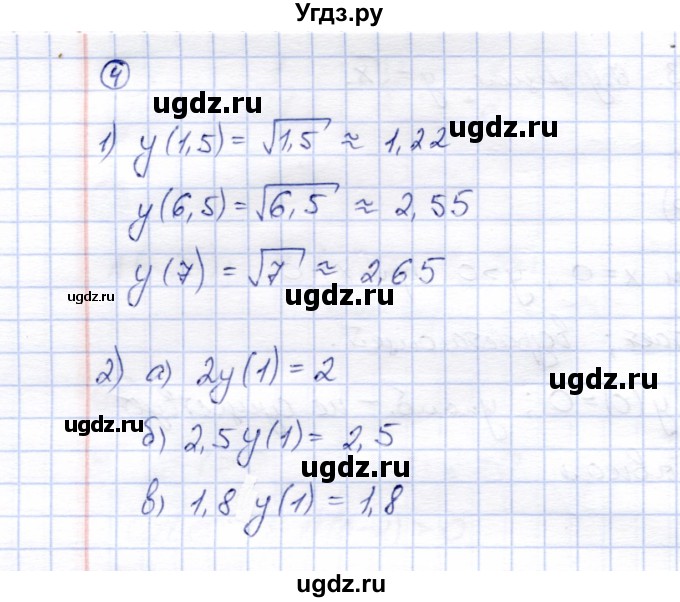 Угдз.ру
4
ugdz.ru
ugdz.ru
1) y(1,5) = √1,5 ≈ 1,22
y(6,5) = √6,5 ≈ 2,55
y(7) = √7 ≈ 2,65
ugdz.ru
ugdz.ru
2) а) 2y(1) = 2
ugdz.ru
ugdz.ru
б) 2,5y(1) = 2,5
ugdz.ru
в) 1,8 y(1) = 1,8
ugdz.ru